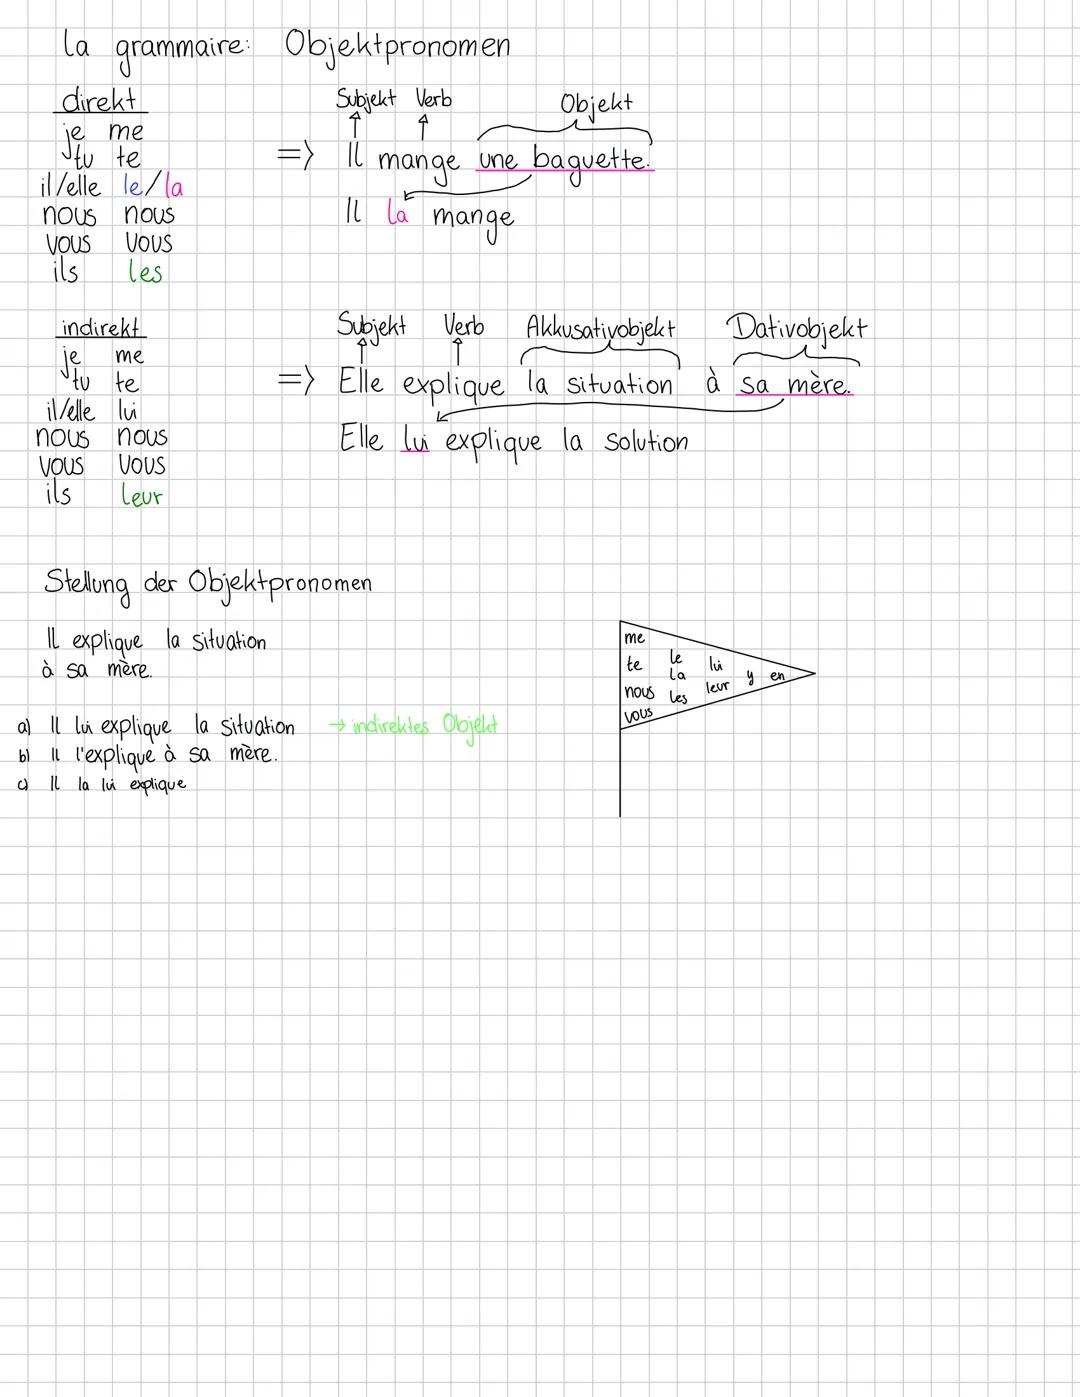 la grammaire: Objektpronomen
direkt
je me
tu te
il/elle le/la
nous nous
vous vous
ils les
Subjekt Verb Objekt
=> Il mange une baguette.
Il la mange
indirekt
je me
tu te
il/elle lui
nous nous
vous vous
ils leur
Subjekt Verb Akkusativobjekt Dativobjekt
=> Elle explique la situation à sa mère.
Elle lui explique la solution
Stellung der Objektpronomen
Il explique la situation
à sa mère.
a) Il lui explique la situation → indirektes Objekt
b) Il l'explique à sa mère.
c) Il la lui explique
me
te
nous
vous
le
la
les
lui
leur
y
en